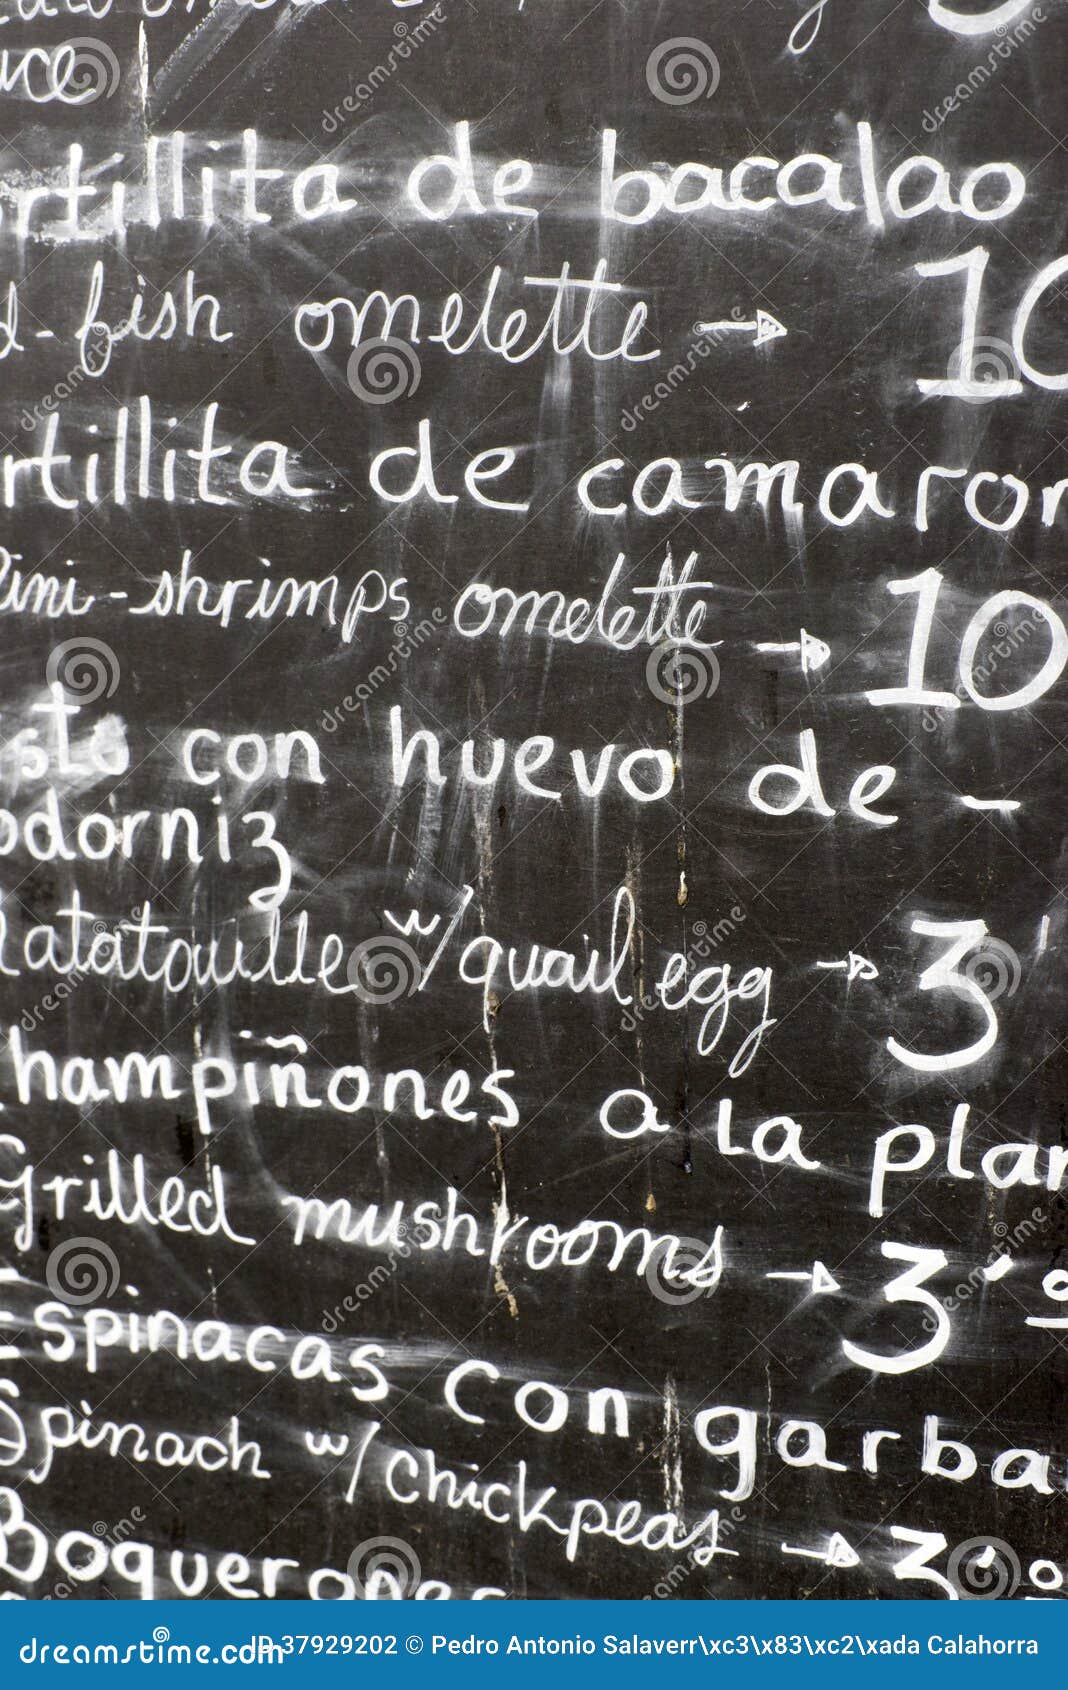 uce
rtillita de bacalao
d-fish omelette → 10
rtillita de camaron
ini-shrimps omelette → 10
sto con huevo de -
odorniz
Ratatouille w/quail egg → 3
hampiñones a la plan
Grilled mushrooms → 3'0
Espinacas con garba
Spinach w/chickpeas → 3'0
Boquerones
dreamstime.com
ID 37929202 © Pedro Antonio Salaverr\xc3\x83\xc2\xada Calahorra